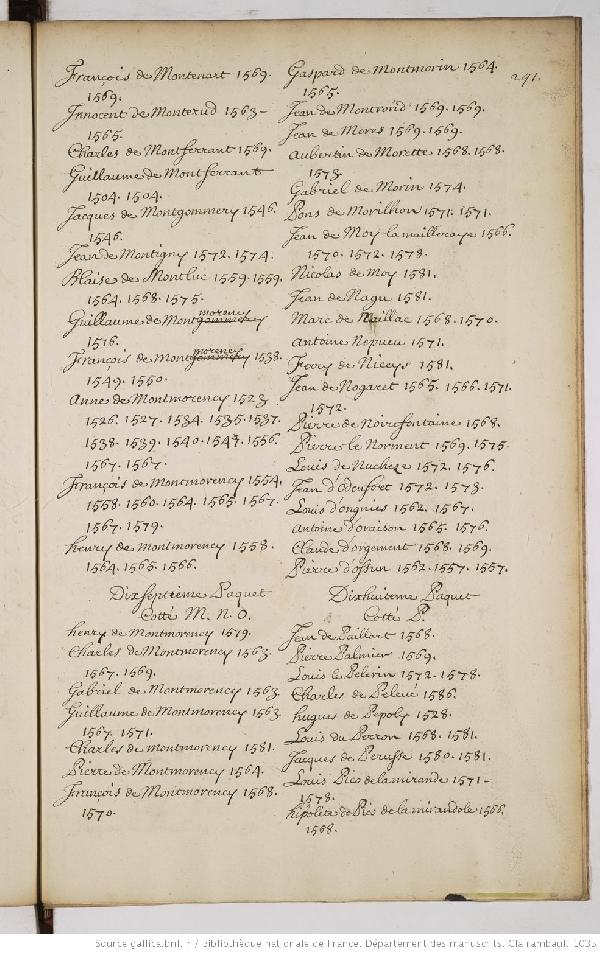 291.
François de Montenart 1569.
1569.
Innocent de Monterud 1563-
1565.
Charles de Montferrant 1569.
Guillaume de Montferrant
1504. 1504.
Jacques de Montgommery 1546.
1546.
Jean de Montigny 1572. 1574.
Blaise de Montluc 1559. 1559.
1564. 1568. 1575.
Guillaume de Montmorency
1516.
François de Montmorency 1538.
1549. 1550.
Anne de Montmorency 1523
1526. 1527. 1534. 1535. 1537.
1538. 1539. 1540. 1547. 1556.
1567. 1567.
François de Montmorency 1554.
1558. 1560. 1564. 1565. 1567.
1567. 1579.
henry de Montmorency 1558.
1564. 1565. 1566.
Dixseptieme Paquet
Cotté M. N. O.
henry de Montmorency 1579.
Charles de Montmorency 1563.
1567. 1569.
Gabriel de Montmorency 1563.
Guillaume de Montmorency 1563
1567. 1571.
Charles de montmorency 1581.
Pierre de Montmorency 1564.
François de Montmorency 1568.
1570.
Gaspard de Montmorin 1564.
1565.
Jean de Montrond 1569. 1569.
Jean de Mores 1569. 1569.
Aubertin de Morette 1568. 1568.
1573.
Gabriel de Morin 1574.
Pons de Morilhon 1571. 1571.
Jean de Moy la mailleraye 1566.
1570. 1572. 1578.
Nicolas de Moy 1581.
Jean de Nagu 1581.
Marc de Naillac 1568. 1570.
Antoine Nepueu 1571.
Ferry de Niceys 1581.
Jean de Nogaret 1565. 1566. 1571.
1572.
Pierre de Noirefontaine 1568.
Pierre le Norment 1569. 1575.
Louis de Nucheze 1572. 1576.
Jean d'Odeufort 1572. 1573.
Louis d'ongnies 1562. 1567.
Antoine d'oraison 1565. 1576.
Claude d'orgement 1568. 1569.
Pierre d'ossun 1562. 1557. 1567.
Dixhuiteme Paquet
Cotté P.
Jean de Paillart 1568.
Pierre Palmier 1569.
Louis le Pelerin 1572. 1578.
Charles de Pelevé 1586.
hugues de Pepoly 1528.
Louis du Perron 1568. 1581.
Jacques de Perusse 1580. 1581.
Louis Pics de la mirande 1571-
1578.
hipolite de Pics de la mirandole 1566.
1568.
Source gallica.bnf.fr / Bibliothèque nationale de France. Département des manuscrits. Clairambault 1035